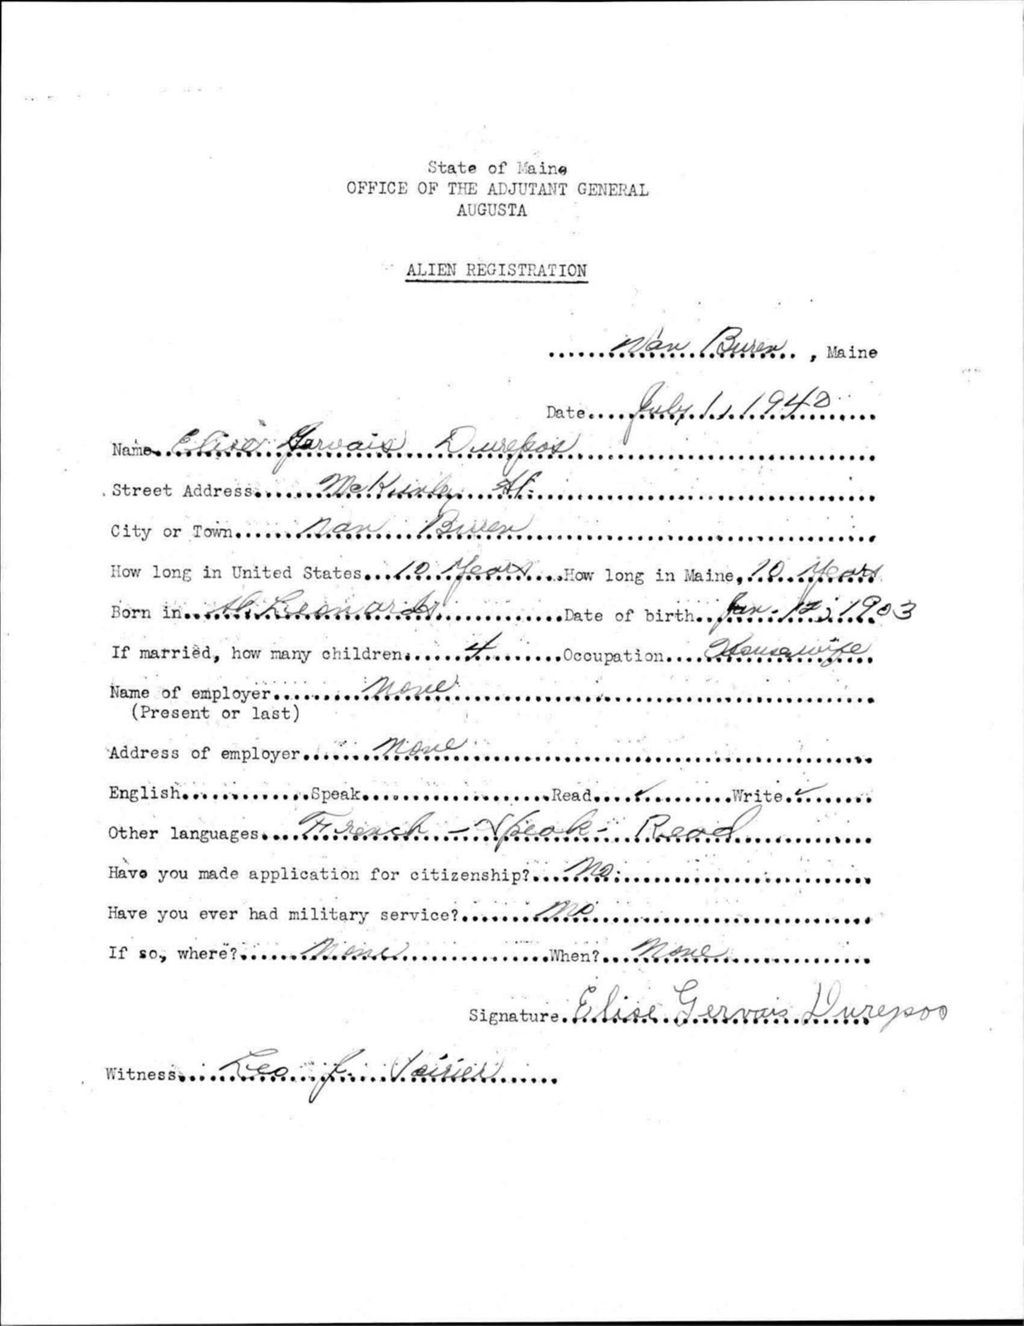 State of Maine
OFFICE OF THE ADJUTANT GENERAL
AUGUSTA
ALIEN REGISTRATION
Van Buren, Maine
Date July 1, 1940
Name Elise Gervais Durepos
Street Address McKinley St.
City or Town Van Buren
How long in United States 10 Years How long in Maine, 10 Years
Born in St. Leonard Date of birth Jan. 12, 1903
If married, how many children 4 Occupation Housewife
Name of employer None
(Present or last)
Address of employer None
English Speak Read ✓ Write ✓
Other languages French - Speak - Read
Have you made application for citizenship? No.
Have you ever had military service? No
If so, where? None When? None
Signature Elise Gervais Durepos
Witness Leo J.